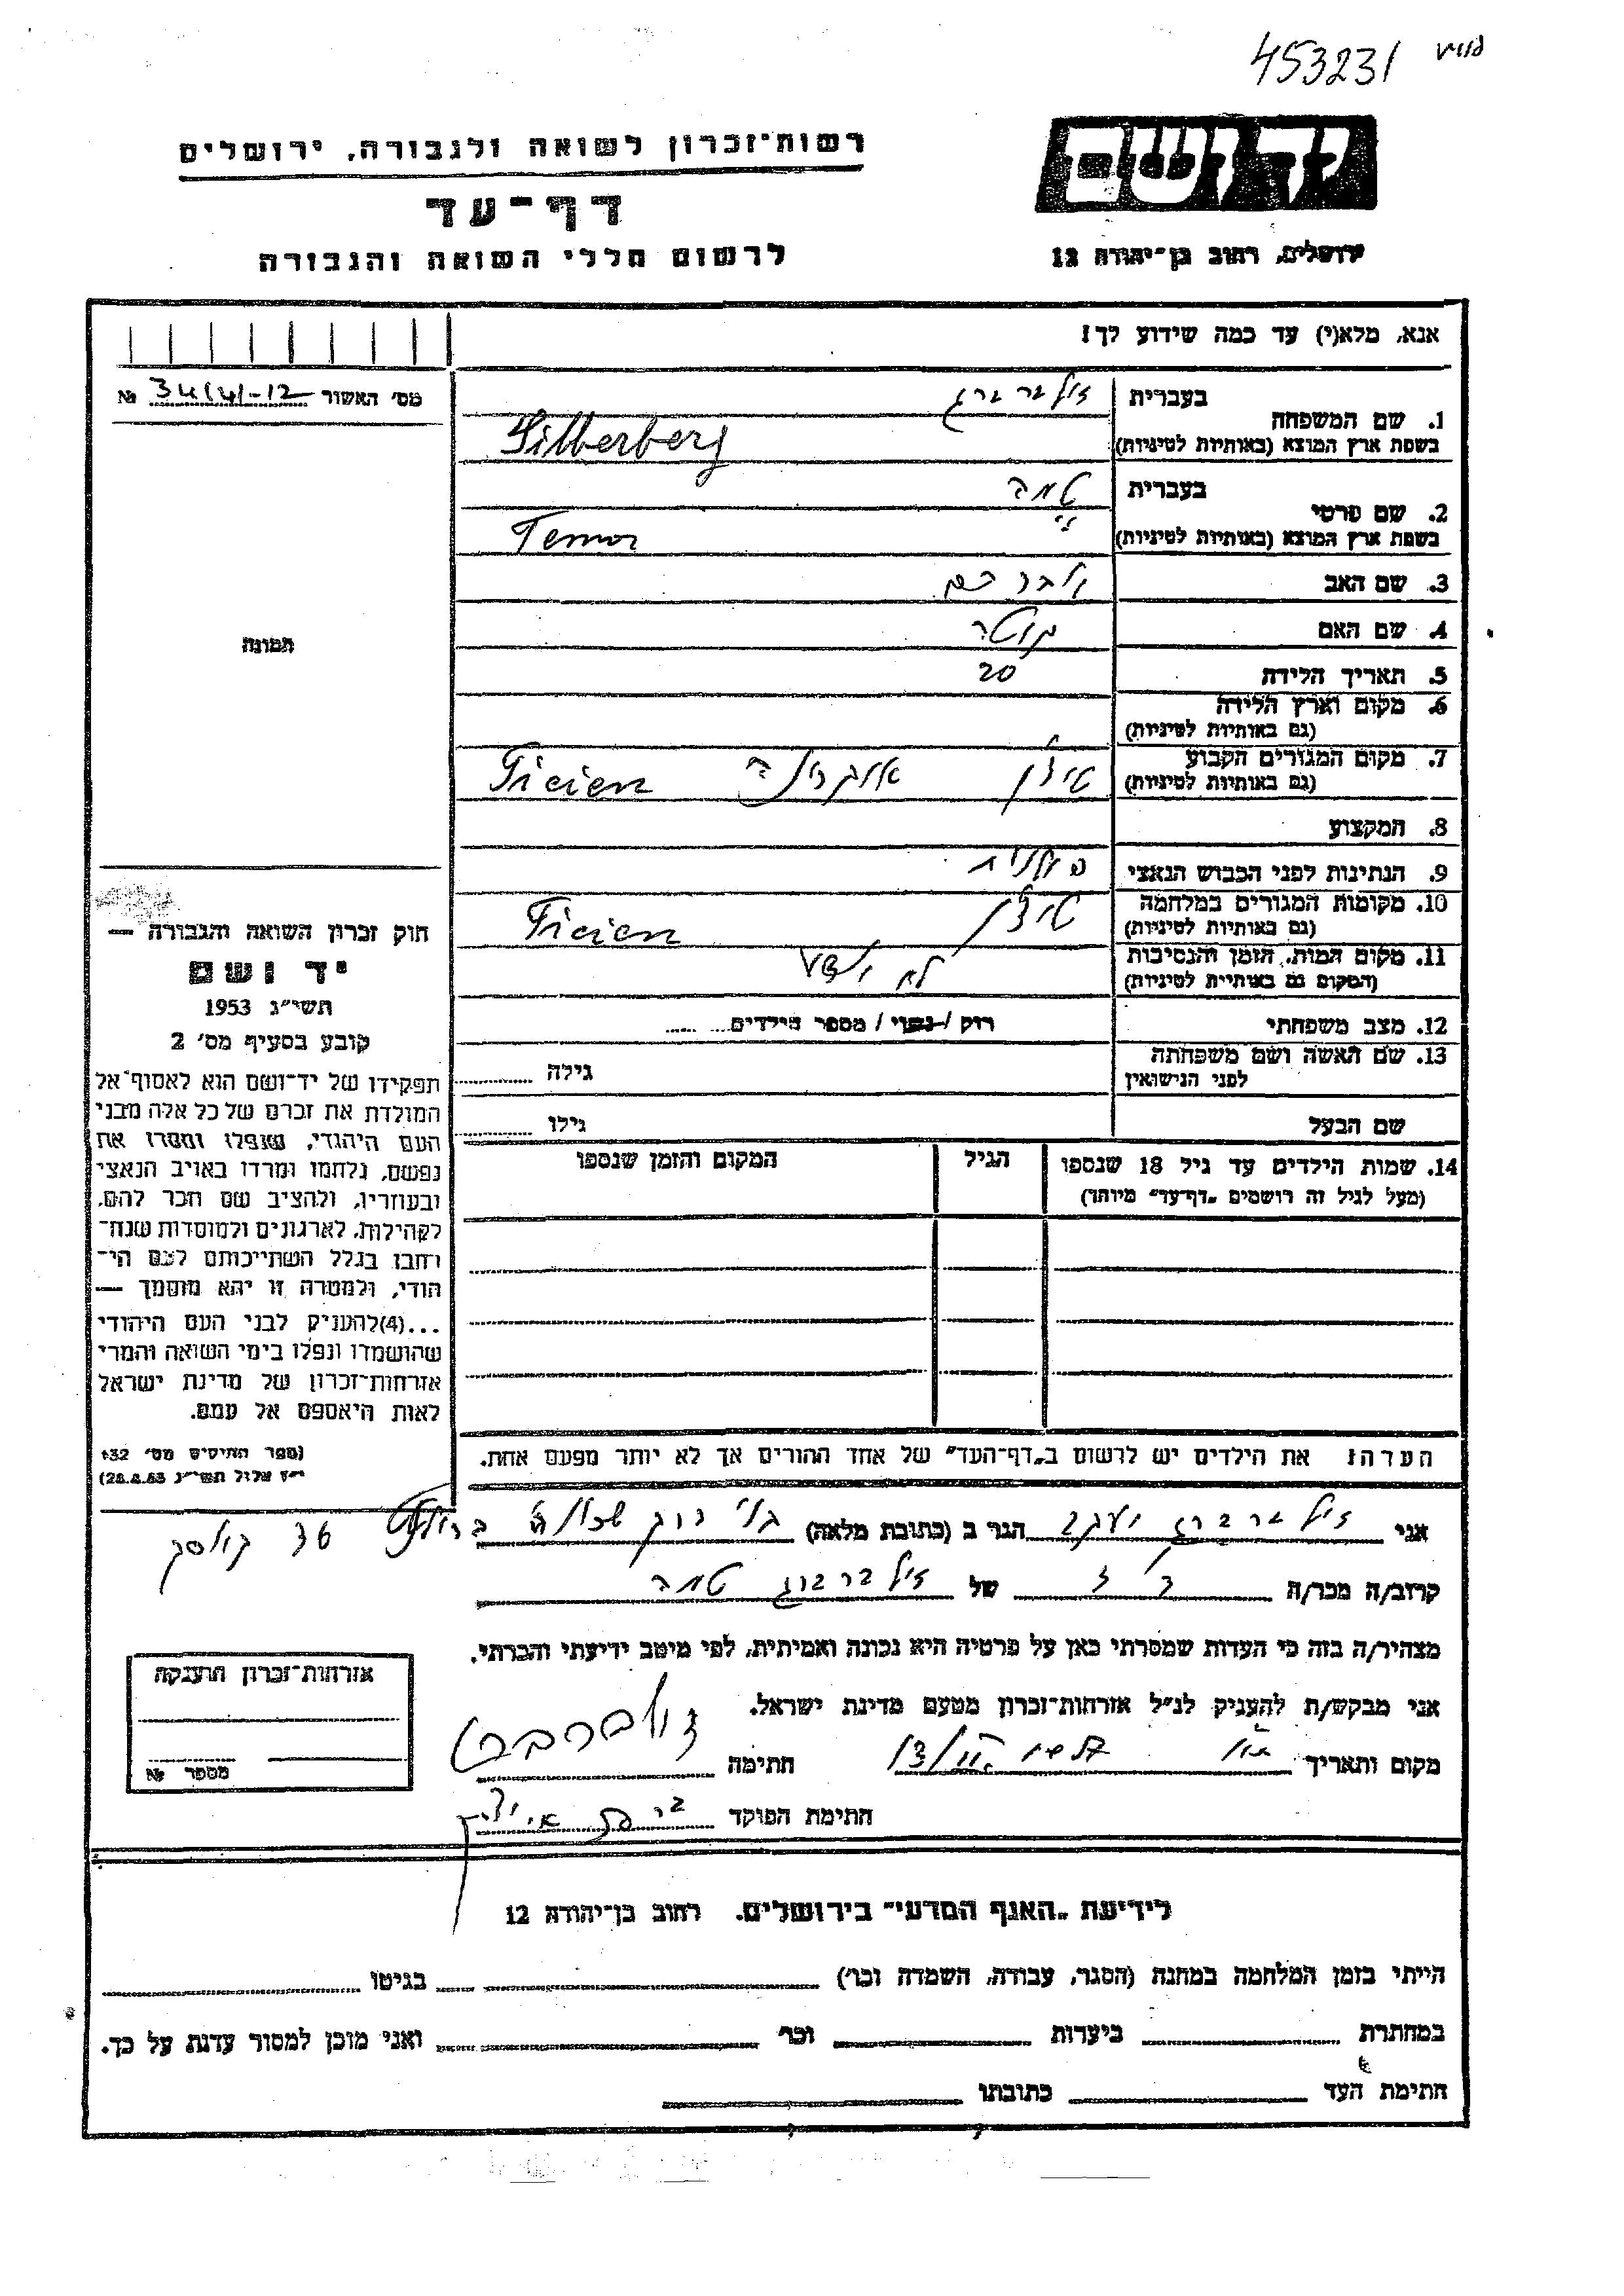 453231
יד ושם
ירושלים, רחוב בן־יהודה 12
רשות־זכרון לשואה ולגבורה, ירושלים
דף־עד
לרשום חללי השואה והגבורה
אנא, מלא(י) עד כמה שידוע לך!
מס' האשור № 34/4/-12
1. שם המשפחה
בעברית זילברברג
בשפת ארץ המוצא (באותיות לטיניות) Silberberg
2. שם פרטי
בעברית טמר
בשפת ארץ המוצא (באותיות לטיניות) Temor
3. שם האב אברהם
4. שם האם
5. תאריך הלידה 20
6. מקום וארץ הלידה
(גם באותיות לטיניות)
7. מקום המגורים הקבוע
(גם באותיות לטיניות) Ticien
8. המקצוע
9. הנתינות לפני הכבוש הנאצי פולנית
10. מקומות המגורים במלחמה
(גם באותיות לטיניות) Ticien
11. מקום המות, הזמן והנסיבות
(המקום גם באותיות לטיניות) לא ידוע
12. מצב משפחתי רווק / נשוי / מספר הילדים
13. שם האשה ושם משפחתה
לפני הנישואין גילה
שם הבעל גילו
14. שמות הילדים עד גיל 18 שנספו הגיל המקום והזמן שנספו
(מעל לגיל זה רושמים „דף־עד" מיוחד)
תמונה
חוק זכרון השואה והגבורה —
יד ושם
תשי"ג 1953
קובע בסעיף מס' 2
תפקידו של יד־ושם הוא לאסוף אל
המולדת את זכרם של כל אלה מבני
העם היהודי, שנפלו ומסרו את
נפשם, נלחמו ומרדו באויב הנאצי
ובעוזריו, ולהציב שם וזכר להם,
לקהילות, לארגונים ולמוסדות שנח־
רבו בגלל השתייכותם לעם הי־
הודי, ולמטרה זו יהא מוסמך —
...(4)להעניק לבני העם היהודי
שהושמדו ונפלו בימי השואה והמרי
אזרחות־זכרון של מדינת ישראל
לאות היאספם אל עמם.
(ספר החוקים מס' 132
י"ז אלול תשי"ג 28.8.53)
הערה: את הילדים יש לרשום ב„דף־העד" של אחד ההורים אך לא יותר מפעם אחת.
אני זילברברג יעקב הגר ב (כתובת מלאה)
קרוב/ה מכר/ה של זילברברג טמר
מצהיר/ה בזה כי העדות שמסרתי כאן על פרטיה היא נכונה ואמיתית, לפי מיטב ידיעתי והכרתי.
אני מבקש/ת להעניק לנ"ל אזרחות־זכרון מטעם מדינת ישראל.
מקום ותאריך חתימה זילברברג
חתימת הפוקד
אזרחות־זכרון הוענקה
מספר №
לידיעת „האגף המדעי" בירושלים, רחוב בן־יהודה 12
הייתי בזמן המלחמה במחנה (הסגר, עבודה, השמדה וכו') בגיטו
במחתרת ביערות וכו' ואני מוכן למסור עדות על כך.
חתימת העד כתובתו